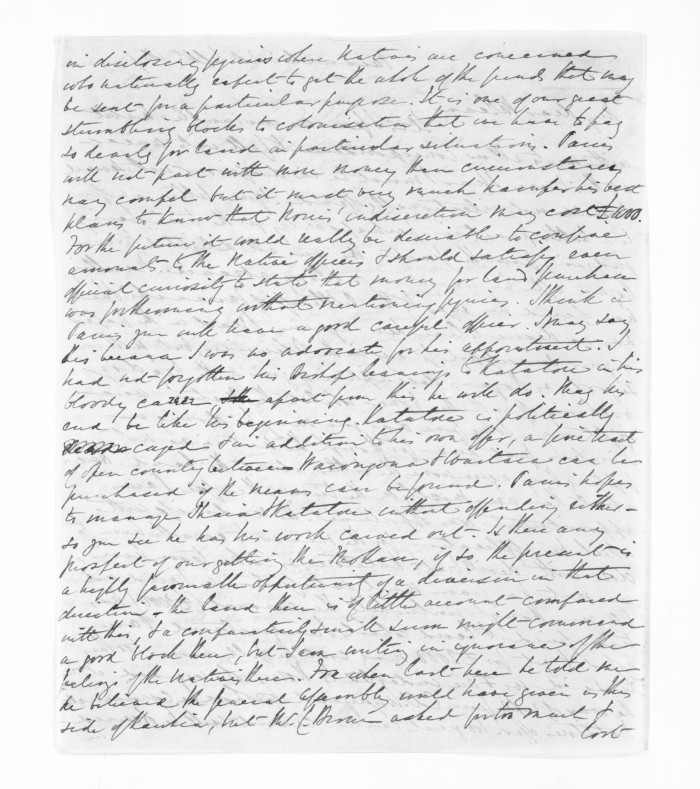 in disclosing figures where Natives are concerned
who naturally expect to get the whole of the funds that may
be sent for a particular purpose. It is one of our great
stumbling blocks to colonisation that we have to pay
so dearly for land in particular situations. Parris
will not part with more money than circumstances
may compel but it must very much hamper his best
plans to know that indiscretion may cost £
For the future it would really be desirable to confine
amounts to the Native offices & should satisfy even
official curiosity to state that money for land purchase
was forthcoming without mentioning figures. I think in
Parris you will have a good careful officer. I may say
this because I was no advocate for his appointment. I
had not forgotten his Bishop leanings & Katatore in his
bloody career apart from this he will do. May his
end be like his beginning. Katatore is politically
caged & in addition to his own offer, a fine tract
of open country between Waiongona & Waitara can be
purchased if the means can be found. Parris hopes
to manage Ihaia & Katatore without offending either -
so you see he has his work carved out. Is there any
prospect of our getting the Mokau, if so the present is
a highly favourable opportunity of a diversion in that
direction - the land there is of little account compared
with this, & a comparatively small sum might command
a good block there, but I am writing in ignorance of the
feeling of the Natives there. Fox when last here he told me
he believed the General Assembly would have given us this
side of Kawhia, but Mr C Brown asked for too much &
lost